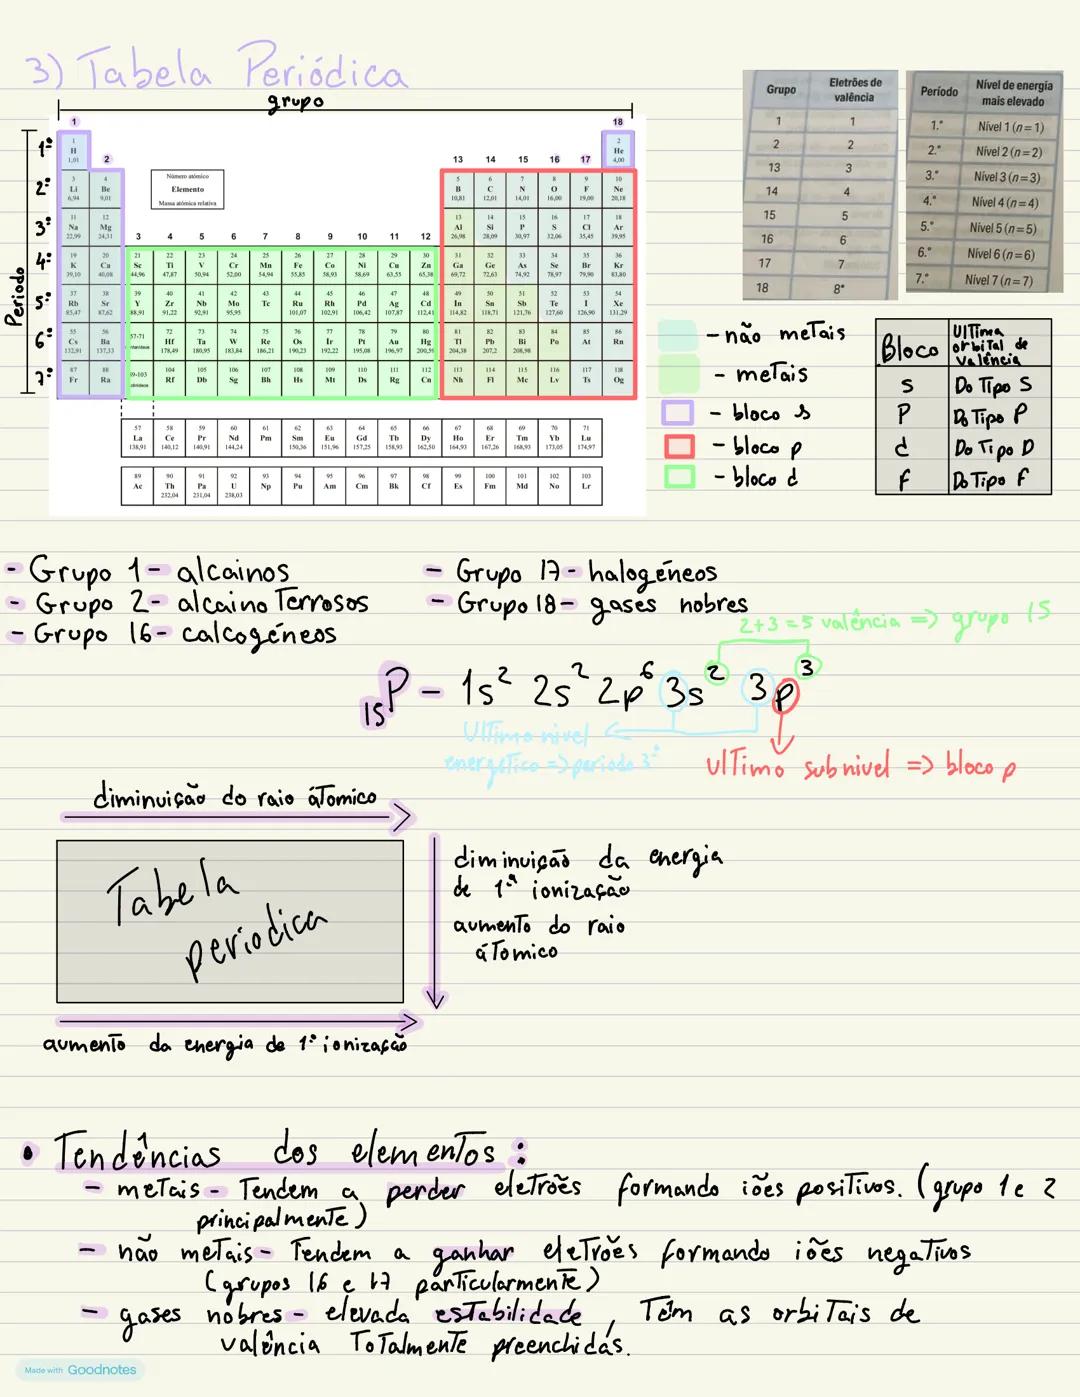 3) Tabela Periódica
grupo
Periodo
1º
2º
3º
4º
5º
6º
7º
1 18
1 H 1,01
2
2 He 4,00
13 14 15 16 17
Número atómico
Elemento
Massa atómica relativa
3 Li 6,94
4 Be 9,01
5 B 10,81
6 C 12,01
7 N 14,01
8 O 16,00
9 F 19,00
10 Ne 20,18
11 Na 22,99
12 Mg 24,31
3 4 5 6 7 8 9 10 11 12
13 Al 26,98
14 Si 28,09
15 P 30,97
16 S 32,06
17 Cl 35,45
18 Ar 39,95
19 K 39,10
20 Ca 40,08
21 Sc 44,96
22 Ti 47,87
23 V 50,94
24 Cr 52,00
25 Mn 54,94
26 Fe 55,85
27 Co 58,93
28 Ni 58,69
29 Cu 63,55
30 Zn 65,38
31 Ga 69,72
32 Ge 72,63
33 As 74,92
34 Se 78,97
35 Br 79,90
36 Kr 83,80
37 Rb 85,47
38 Sr 87,62
39 Y 88,91
40 Zr 91,22
41 Nb 92,91
42 Mo 95,95
43 Tc
44 Ru 101,07
45 Rh 102,91
46 Pd 106,42
47 Ag 107,87
48 Cd 112,41
49 In 114,82
50 Sn 118,71
51 Sb 121,76
52 Te 127,60
53 I 126,90
54 Xe 131,29
55 Cs 132,91
56 Ba 137,33
57-71
72 Hf 178,49
73 Ta 180,95
74 W 183,84
75 Re 186,21
76 Os 190,23
77 Ir 192,22
78 Pt 195,08
79 Au 196,97
80 Hg 200,59
81 Tl 204,38
82 Pb 207,2
83 Bi 208,98
84 Po
85 At
86 Rn
87 Fr
88 Ra
89-103
104 Rf
105 Db
106 Sg
107 Bh
108 Hs
109 Mt
110 Ds
111 Rg
112 Cn
113 Nh
114 Fl
115 Mc
116 Lv
117 Ts
118 Og
57 La 138,91
58 Ce 140,12
59 Pr 140,91
60 Nd 144,24
61 Pm
62 Sm 150,36
63 Eu 151,96
64 Gd 157,25
65 Tb 158,93
66 Dy 162,50
67 Ho 164,93
68 Er 167,26
69 Tm 168,93
70 Yb 173,05
71 Lu 174,97
89 Ac
90 Th 232,04
91 Pa 231,04
92 U 238,03
93 Np
94 Pu
95 Am
96 Cm
97 Bk
98 Cf
99 Es
100 Fm
101 Md
102 No
103 Lr
Grupo Eletrões de valência
1 1
2 2
13 3
14 4
15 5
16 6
17 7
18 8*
Período Nível de energia mais elevado
1.º Nível 1 (n = 1)
2.º Nível 2 (n = 2)
3.º Nível 3 (n = 3)
4.º Nível 4 (n = 4)
5.º Nível 5 (n = 5)
6.º Nível 6 (n = 6)
7.º Nível 7 (n = 7)
- não metais
- metais
- bloco s
- bloco p
- bloco d
Bloco Ultima orbital de valência
s Do Tipo S
P Do Tipo P
d Do Tipo D
f Do Tipo f
- Grupo 1 - alcainos
- Grupo 2 - alcaino Terrosos
- Grupo 16 - calcogéneos
- Grupo 17 - halogéneos
- Grupo 18 - gases nobres
2+3 = 5 valência => grupo 15
15P - 1s² 2s² 2p⁶ 3s² 3p³
Ultimo nivel
energético => periodo 3º
ultimo subnivel => bloco p
diminuição do raio átomico
Tabela
periodica
diminuição da energia
de 1ª ionização
aumento do raio
átomico
aumento da energia de 1ª ionização
• Tendências dos elementos:
- metais - Tendem a perder eletrões formando iões positivos. (grupo 1 e 2
principalmente)
- não metais - Tendem a ganhar eletrões formando iões negativos
(grupos 16 e 17 particularmente)
- gases nobres - elevada estabilidade, Têm as orbitais de
valência Totalmente preenchidas.
Made with Goodnotes